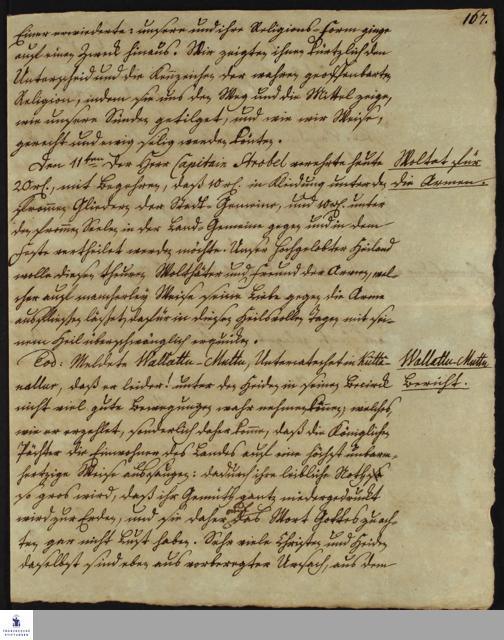 167.
Einer erwiederte: unsere und ihre Religions-Form ginge
auf einen Zweck hinaus. Wir zeigten ihnen kürtzlich den
Unterscheid und die Kenzeichen der wahren geoffenbarten
Religion, indem sie uns den Weg und die Mittel zeige,
wie unsere Sünden getilget, und wie wir Weise,
gerecht und ewig selig werden könten.
Den 11ten Der Herr Capitain Strobel verehrte heute
20 rh., mit Begehren, daß 10 rh. in Kleidung unter den
frommen Gliedern der Stadt-Gemeine, und 10 rh. unter
den frommen Seelen in der Land-Gemeine gegen und in dem
Feste vertheilet werden möchte. Unser Hochgelobter Heiland
wolle diesen theuren Wolthäter und Freund der Armen, wel
cher auf mancherley Weise seine Liebe gegen die Arme
ausfliessen lässet, dafür in diesen Heilsvollen Tagen mit sei-
nem Heil überschwänglich erquicken.
Woltat für
die Armen.
Eod: Meldete Wallattu-Muttu, Untercatechet in Kutta
nallur, daß er leider! unter den Heiden in seinem Bezirck
nicht viel gute Bewegungen wahrnehmen könne, welches,
wie er erzehlet, sonderlich daher komme, daß die Königlichen
Pächter die Einwohner des Landes auf eine höchst unbarm-
hertzige Weise aussaugen: dadurch ihre leibliche Noth
so gros wird, daß ihr Gemüth gantz niedergedruckt
wird zur Erden, und sie daher auf das Wort Gottes zu ach-
ten gar nicht Lust haben. Sehr viele Christen und Heiden
daselbst sind eben aus vorberegter Ursach, aus dem
Wallattu-Muttu
Bericht.
FRANCKESCHE
STIFTUNGEN